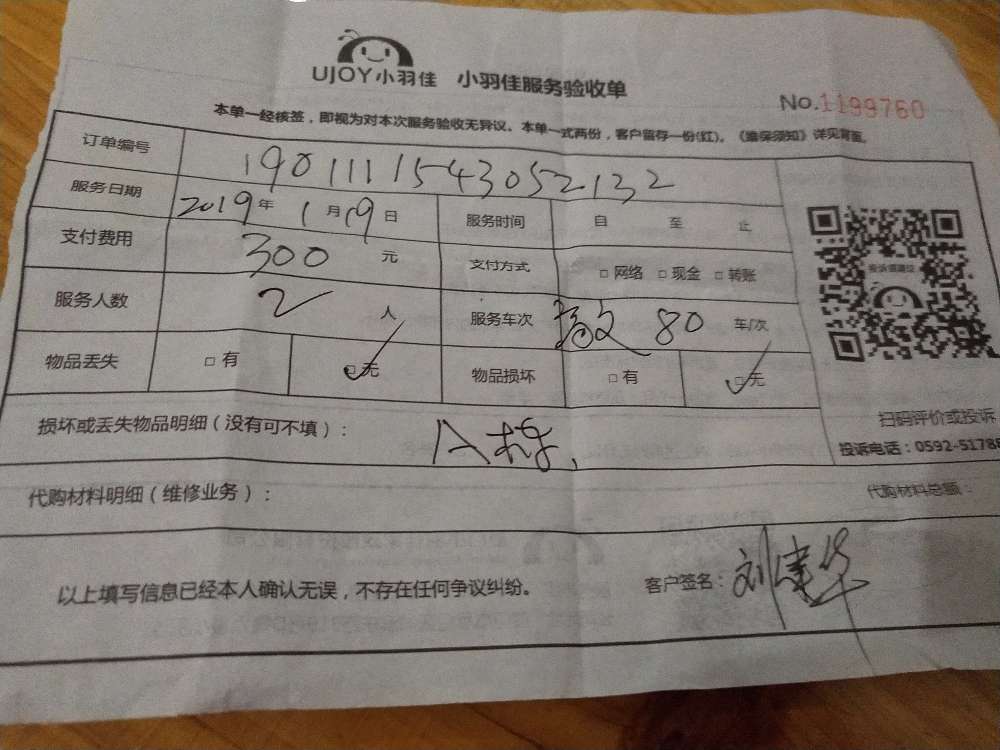 UJOY小羽佳 小羽佳服务验收单
No.1199760
本单一经核签，即视为对本次服务验收无异议。本单一式两份，客户留存一份(红)。《维保须知》详见背面。
订单编号 1901111543052132
服务日期 2019年1月19日 服务时间 自 至 止
支付费用 300元 支付方式 □网络 □现金 □转账
服务人数 2人 服务车次 80 车/次
物品丢失 □有 □无 物品损坏 □有 □无
扫码评价或投诉
损坏或丢失物品明细（没有可不填）： A
投诉电话：0592-5178
代购材料明细（维修业务）： 代购材料总额：
以上填写信息已经本人确认无误，不存在任何争议纠纷。 客户签名：刘建华